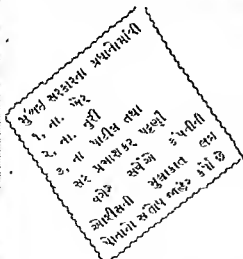 મુંબઈ સરકારના પ્રધાનોમાંથી
૧, ના. ખેર
૨, ના. નુરી
૩, ના પાટીલ તથા
સર પ્રભાશંકર પટ્ટણી
વગેરે સર્વેએ કંપનીની
ઓફીસની મુલાકાત લઇ
પોતાનો સંતોષ જાહેર કર્યો છે